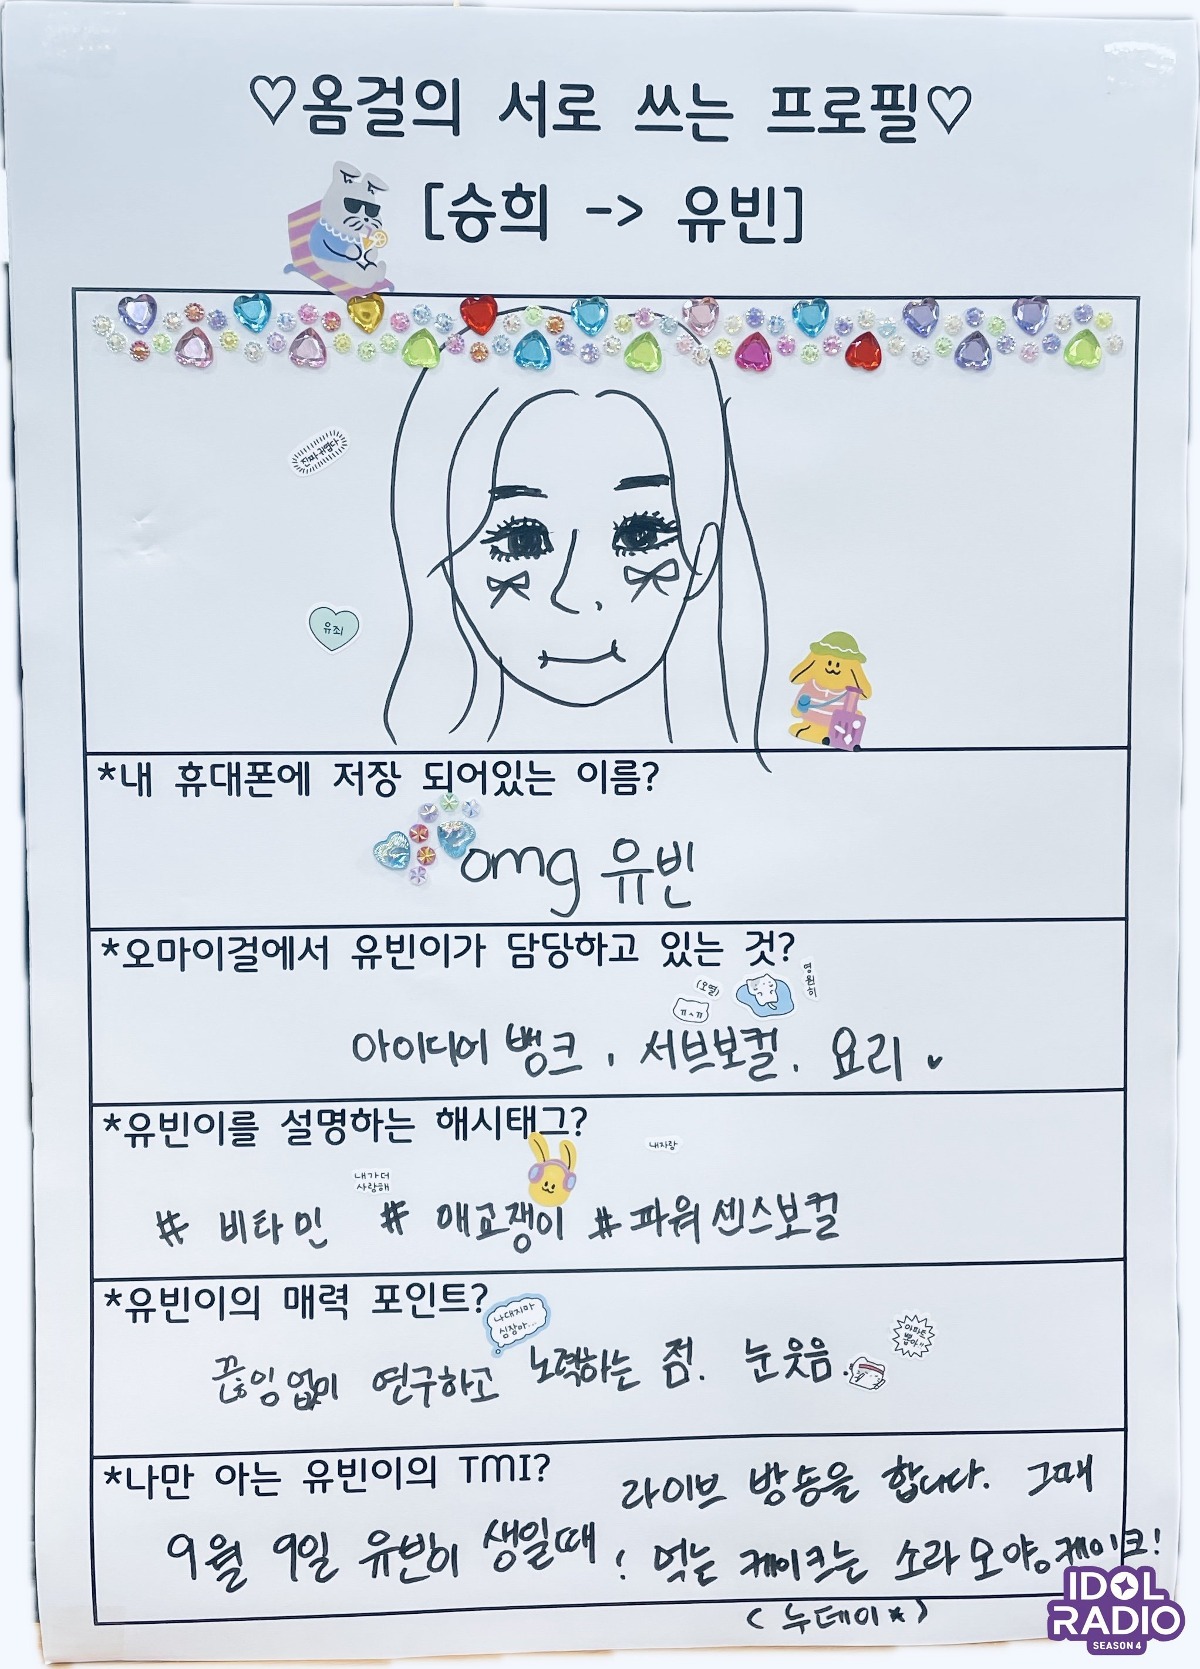 ♡옴걸의 서로 쓰는 프로필♡
[승희 -> 유빈]
진짜 귀엽다
유죄
*내 휴대폰에 저장 되어있는 이름?
omg 유빈
*오마이걸에서 유빈이가 담당하고 있는 것?
(오열)
ㅠㅅㅠ
영원히
아이디어 뱅크, 서브보컬. 요리
*유빈이를 설명하는 해시태그?
내사랑
내가 더
사랑해
# 비타민 # 애교쟁이 # 파워센스보컬
*유빈이의 매력 포인트?
나대지마
심장아...
끊임없이 연구하고 노력하는 점. 눈웃음.
*나만 아는 유빈이의 TMI?
라이브 방송을 합니다. 그때
9월 9일 유빈이 생일때! 먹는 케이크는 소라모양 케이크!
(누데이*)
IDOL
RADIO
SEASON 4